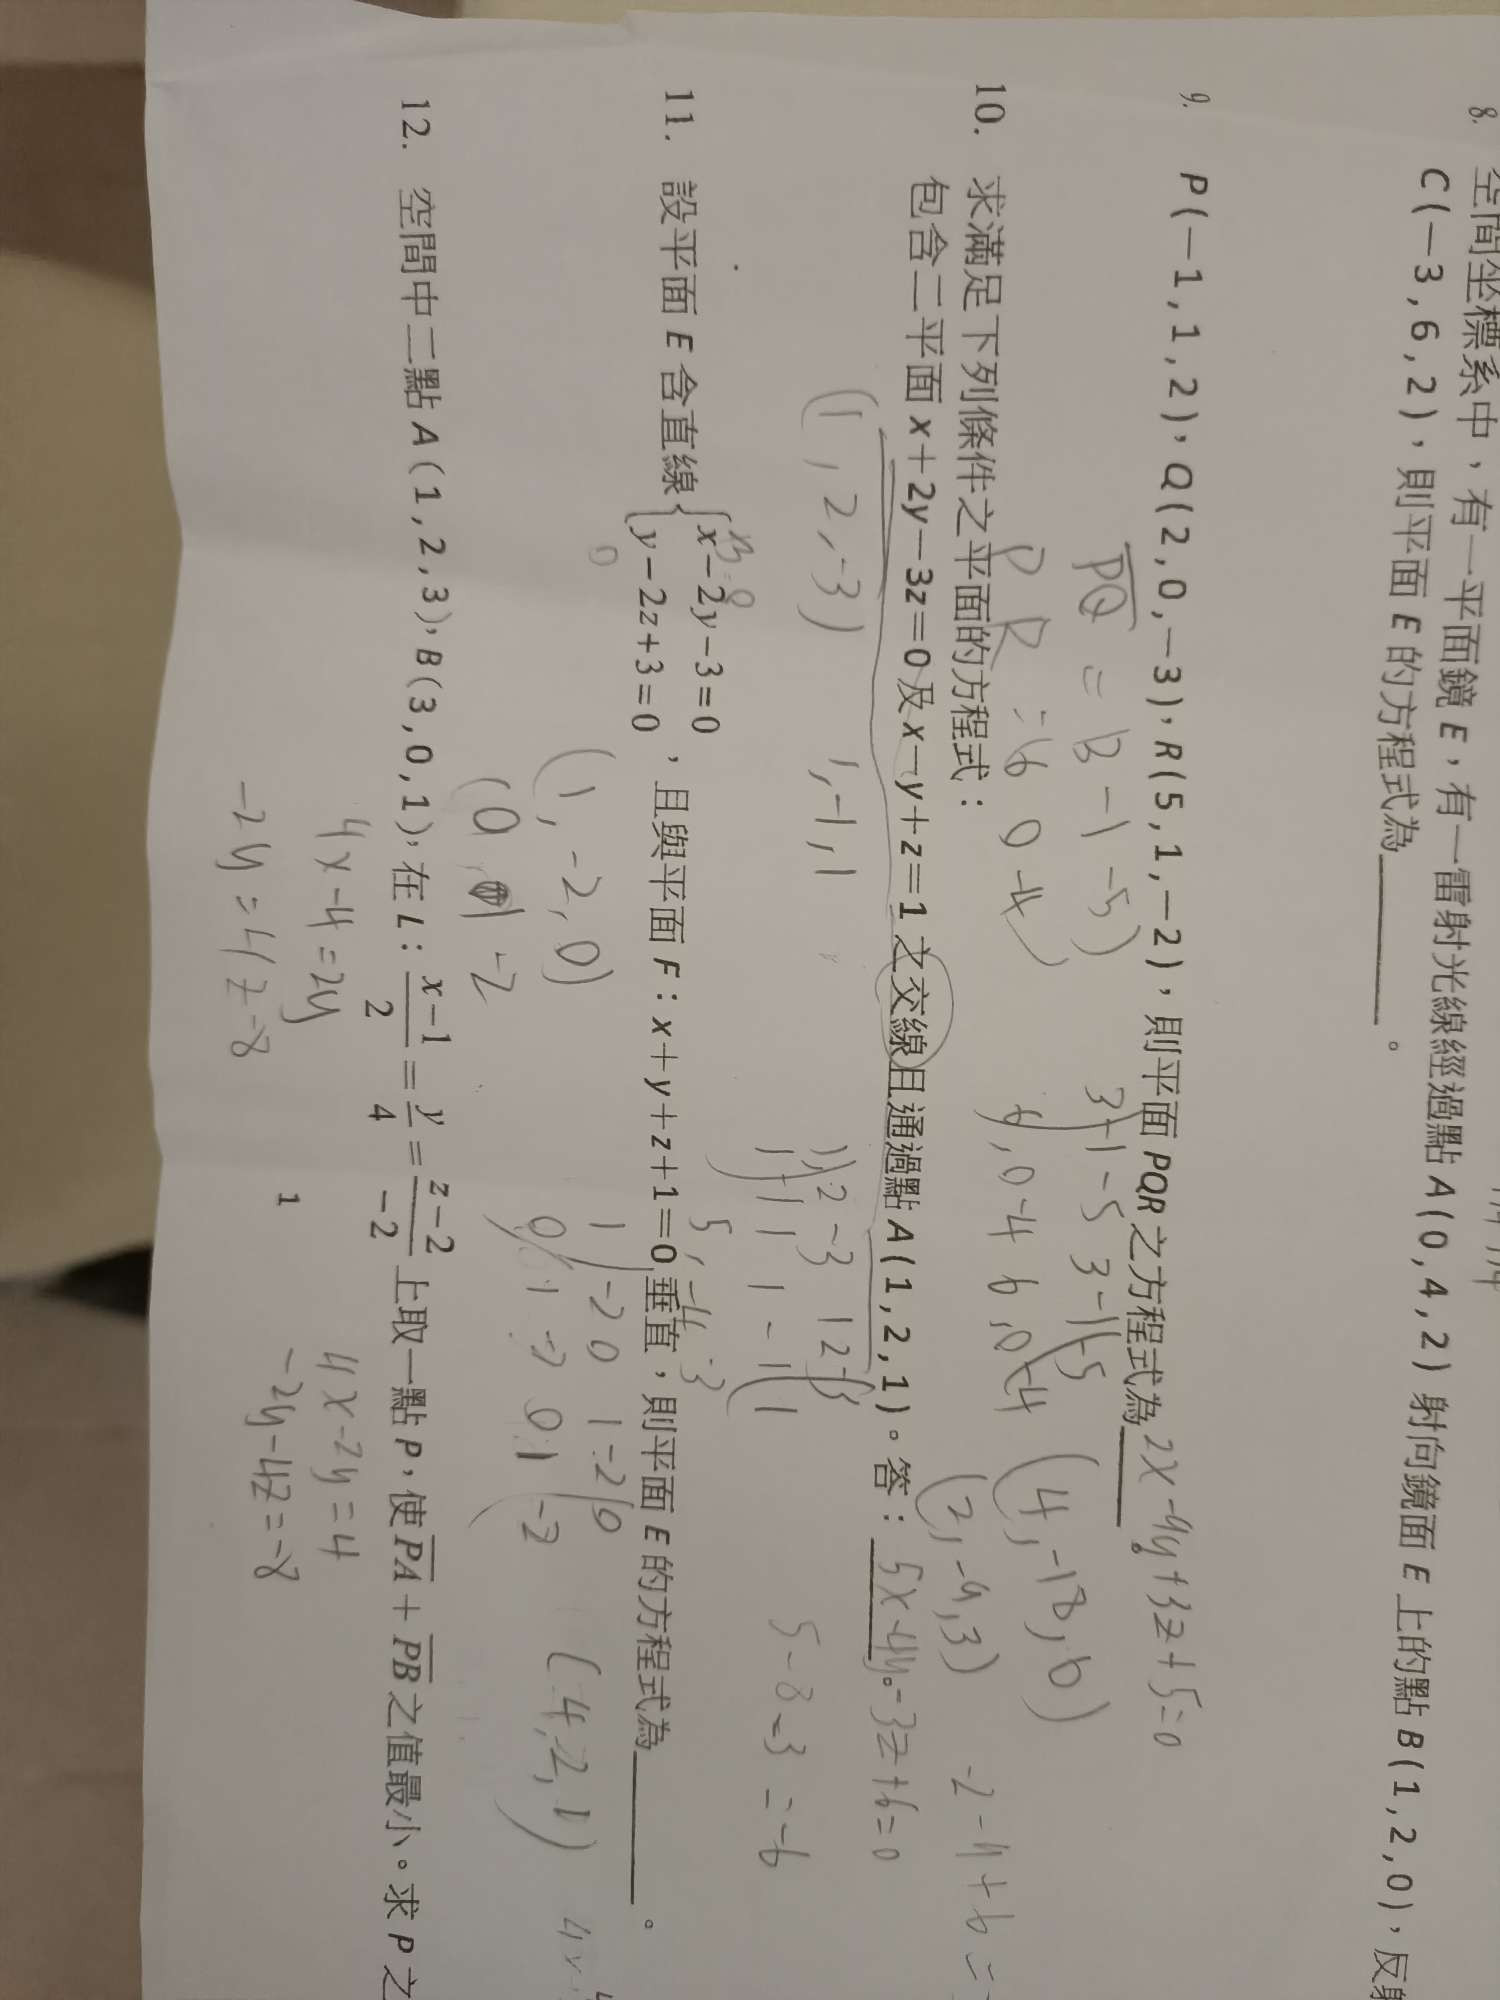 8. 空間坐標系中，有一平面鏡 E，有一雷射光線經過點 A(0,4,2) 射向鏡面 E 上的點 B(1,2,0)，反射
C(−3,6,2)，則平面 E 的方程式為＿＿＿＿。
9. P(−1,1,2)，Q(2,0,−3)，R(5,1,−2)，則平面 PQR 之方程式為 2x-9y+3z+5=0。
PQ = (3 -1 -5)
PR = (6 0 -4)
3 -1 -5 3 -1 -5
6, 0 -4 6, 0 -4
(4, -18, 6)
(2, -9, 3)
-2-9+6=
10. 求滿足下列條件之平面的方程式：
包含二平面 x+2y−3z=0 及 x−y+z=1 之交線且通過點 A(1,2,1)。答： 5x-4y-3z+6=0。
(1, 2, -3) 1, -1, 1
1, 2 -3 1 2 -3
1 -1 1 1 -1 1
5, -4 -3
5-8-3=-6
11. 設平面 E 含直線 {x−2y−3=0
y−2z+3=0 ，且與平面 F：x+y+z+1=0 垂直，則平面 E 的方程式為＿＿＿＿。
(1, -2, 0)
(0 1 -2
1 -2 0 1 -2 0
0 1 -2 0 1 -2
(4, 2, 1)
12. 空間中二點 A(1,2,3)，B(3,0,1)，在 L： x−1/2 = y/4 = z−2/−2 上取一點 P，使 PA + PB 之值最小。求 P 之
4x-4=2y
-2y=4z-8
4x-2y=4
-2y-4z=-8
1